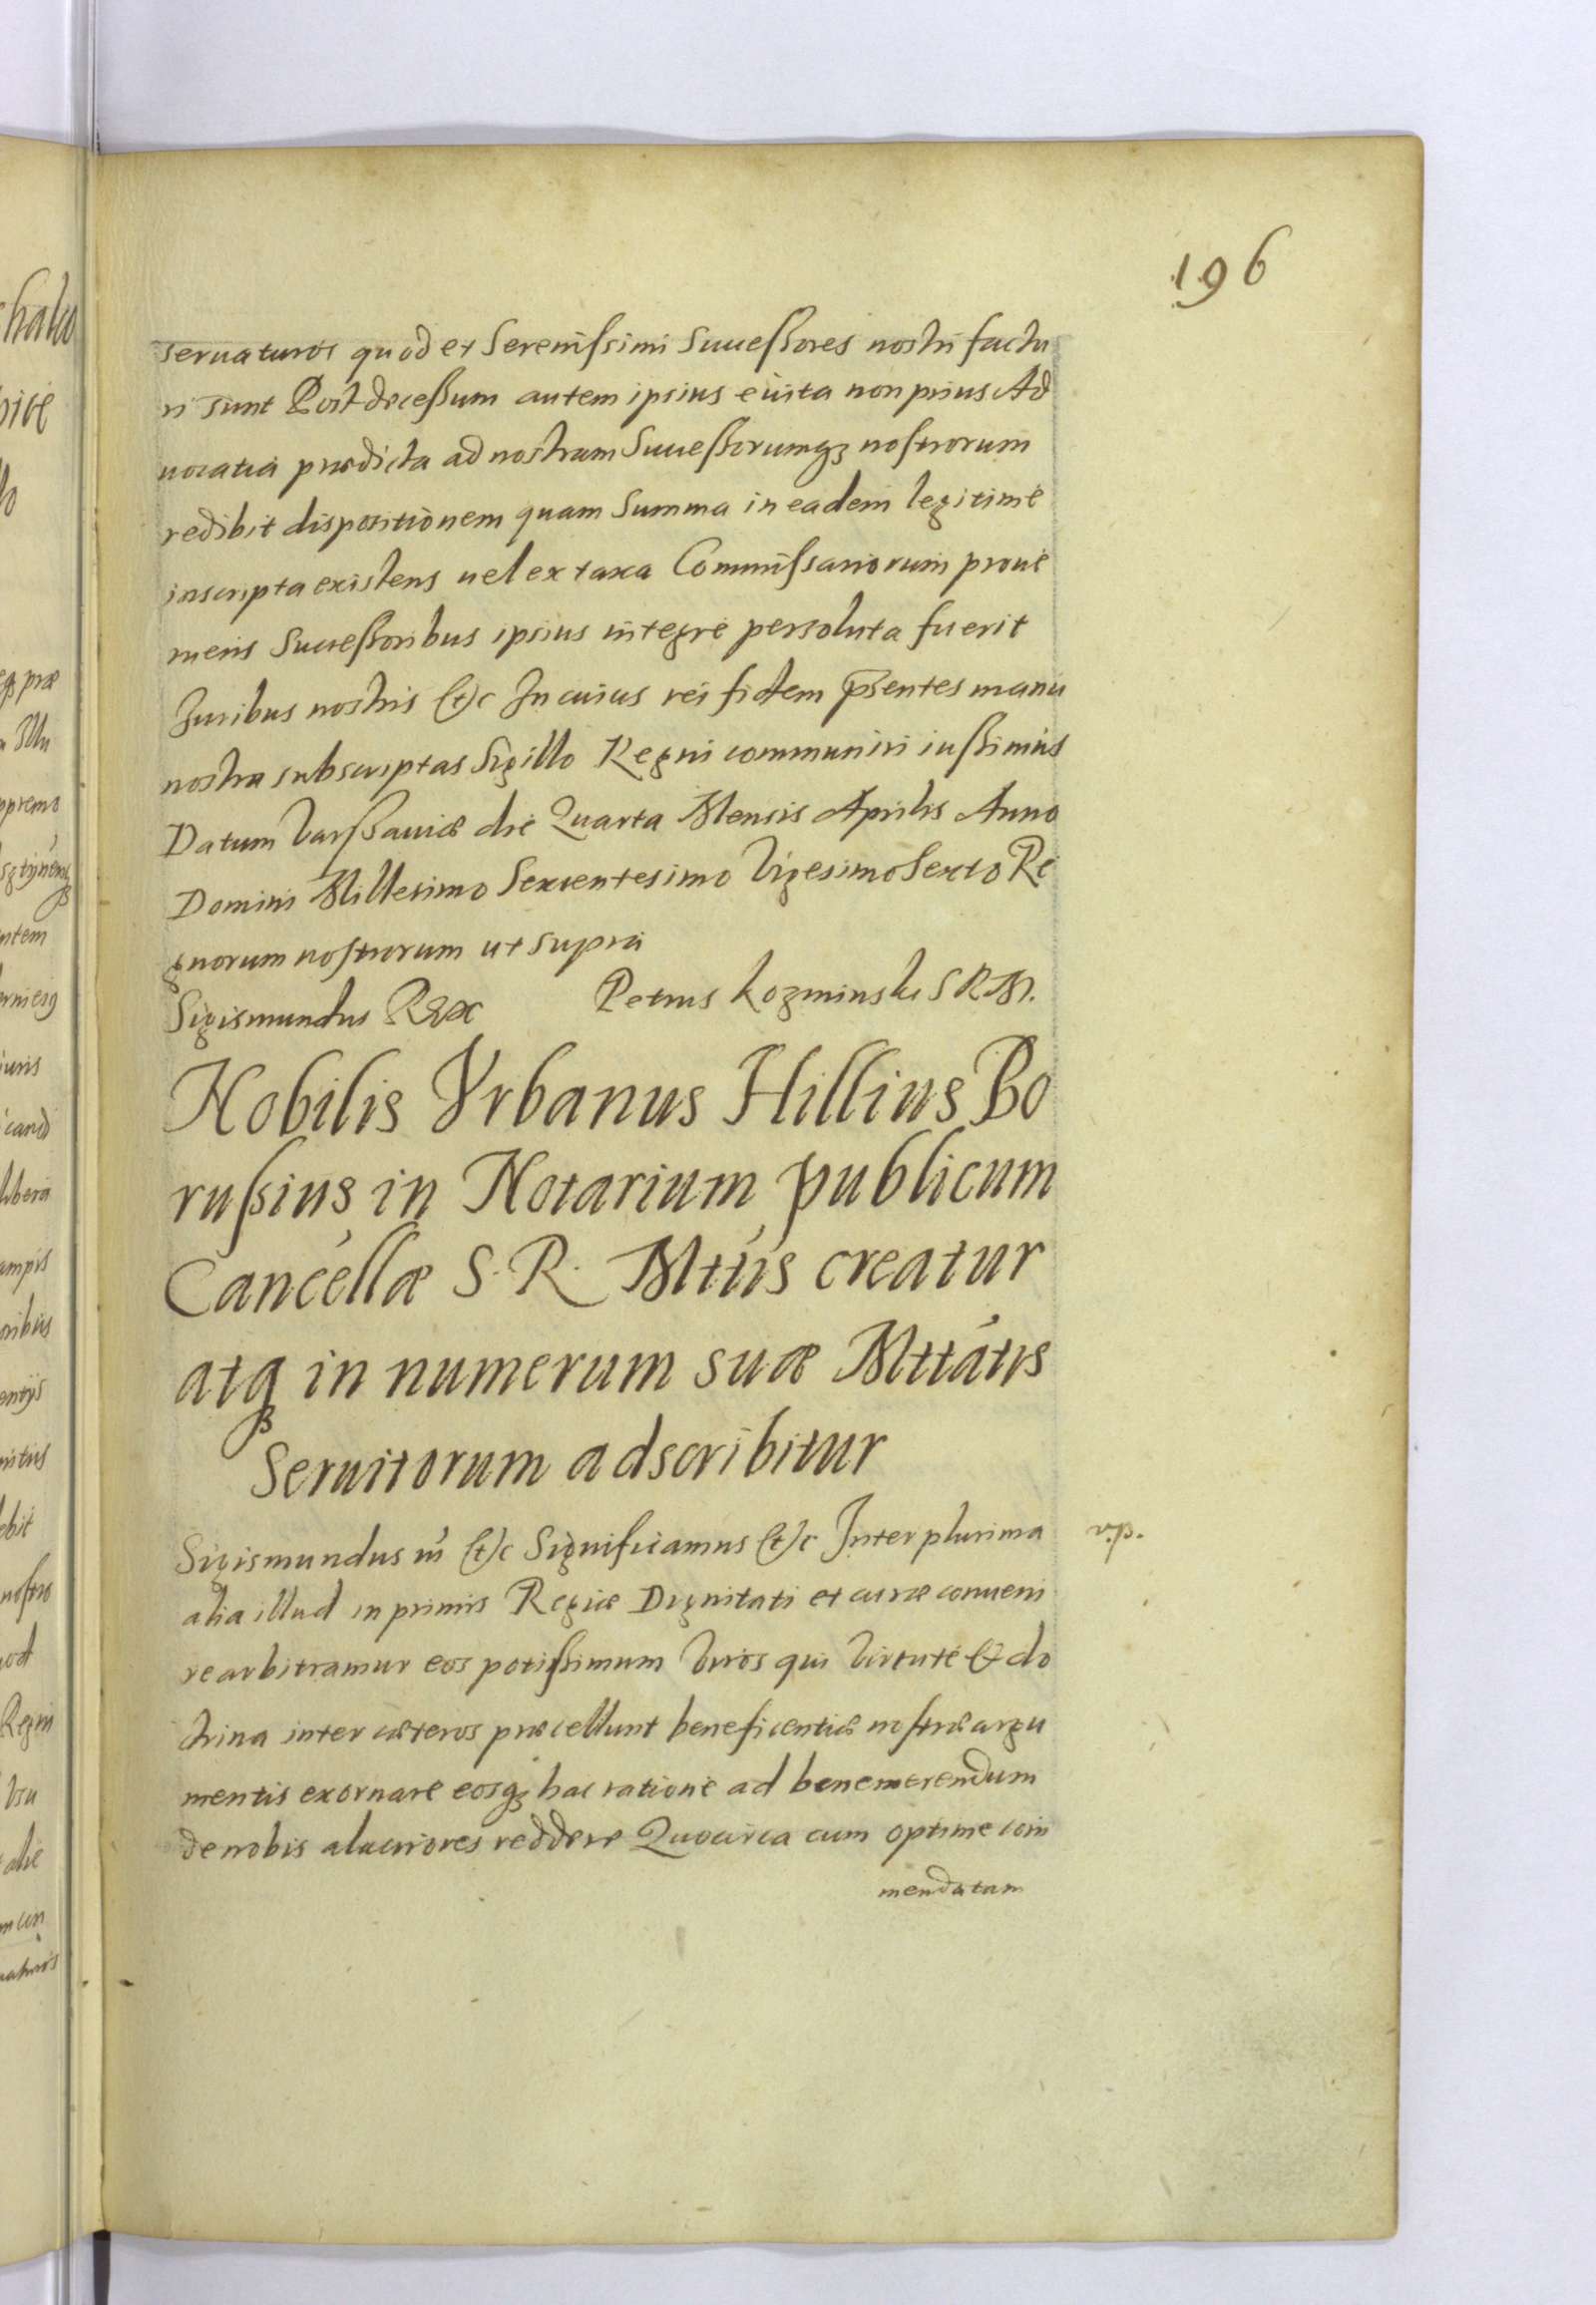 196
seruaturos quod et Serenissimi Successores nostri factu
ri sunt Post decessum autem ipsius e uita non prius Ad
uocatia prædicta ad nostram Successorumq; nostrorum
redibit dispositionem quam Summa in eadem legitime
inscripta existens uel ex taxa Commissariorum proue
niens Successoribus ipsius integre persoluta fuerit
Iuribus nostris etc In cuius rei fidem p̄sentes manu
nostra subscriptas Sigillo Regni communiri iussimus
Datum Varssauiæ die Quarta Mensis Aprilis Anno
Domini Millesimo Sexcentesimo Vigesimo Sexto Re
gnorum nostrorum ut supra
Sigismundus Rex Petrus Kozminski SRM.
Nobilis Vrbanus Hillius Bo
russius in Notarium publicum
Cancellæ S. R. Mttis creatur
atq; in numerum suæ Mttatis
Seruitorum adscribitur
Sigismundus etc Significamus etc Inter plurima
alia illud in primis Regiæ Dignitati et curæ conueni
re arbitramur eos potissimum Viros qui Virtute & do
ctrina inter cæteros præcellunt beneficentiæ nostræ argu
mentis exornare eosq; hac ratione ad benemerendum
de nobis alacriores reddere Quocirca cum optime com
mendatam